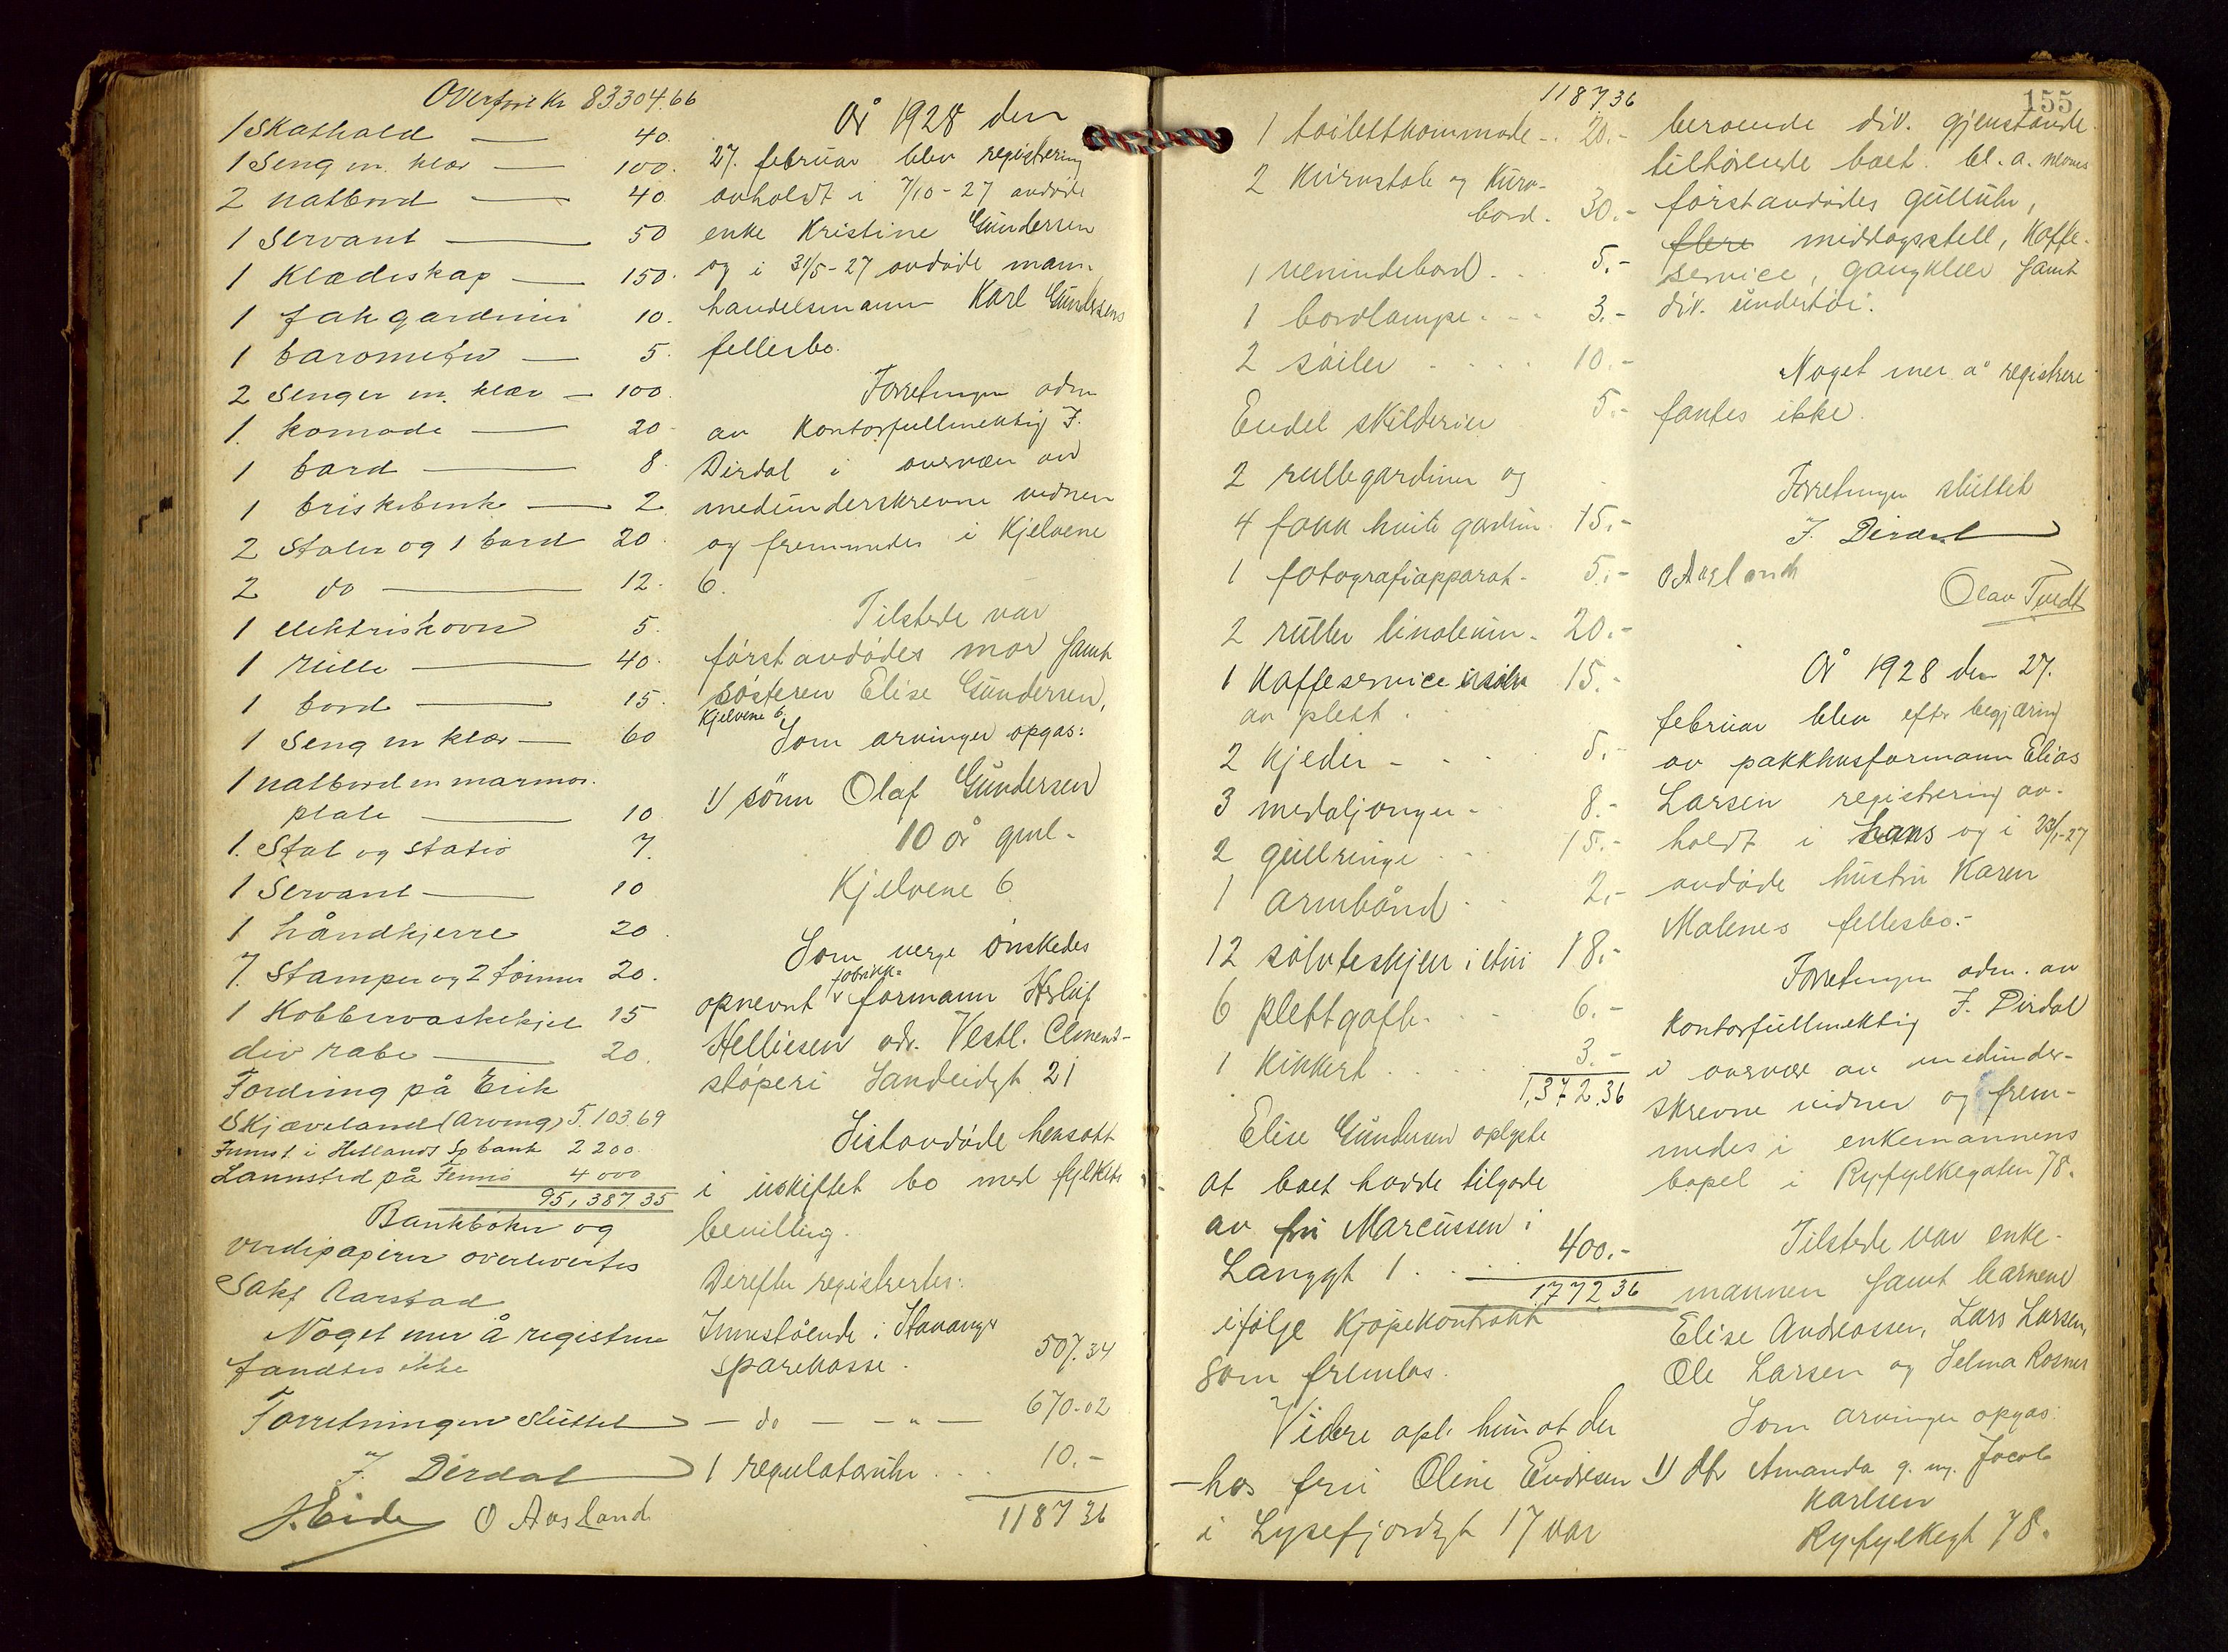 Overført Kr 83304.66
1 Skathald — 40.
1 Seng m. klær — 100.
2 natbord — 40.
1 Servant — 50
1 Klædeskap — 150.
1 fak gardiner 10.
1 barometer — 5.
2 Senger m. klær — 100.
1. komode — 20
1 bord — 8.
1 briskebenk — 2.
2 Stoler og 1 bord 20.
2 do — 12.
1 elektriskovn 5.
1 rulle — 40.
1 bord — 15.
1 Seng m klær — 60
1 natbord m marmor.
plate — 10
1. Stol og stativ 7.
1 Servant — 10
1 håndkjerre 20.
7. Stamper og 2 tønner 20.
1 Kobbervaskekjel 15
div rabe — 20.
Fordring på Erik
Skjæveland (Arving) 5.103.69
Innst. i Hetlands Sp bank 2200.
4000
95,387 35
Bankbøker og
verdipapirer overlevertes
Sakf Aarstad
Noget mer å registrere
fandtes ikke
Forretningen sluttet
J. Dirdal
H. Eide O Aasland
År 1928 den
27. februar blev registrering
avholdt i 7/10-27 avdøde
enke Kristine Gundersen
og i 31/5-27 avdøde mann
handelsmann Karl Gundersens
fellesbo.
Forretningen adm
av Kontorfullmektig J.
Dirdal i overvær av
medunderskrevne vidner
og fremmedes i Kjelvene
6.
Tilstede var
førstavdødes mor samt
søsteren Elise Gundersen,
Kjelvene 6.
Som arvinger opgas:
1/ sønn Olaf Gundersen
10 år gml.
Kjelvene 6.
Som verge ønskedes
fabrikk-
opnevnt formann
Helliesen adr. Vestl. Cement-
støperi Sandeidgt 21
Sistavdøde hensatt
i uskiftet bo med fylkets
bevilling.
Derefter registrertes:
Innestående i Stavanger
sparekasse. 507.34
— do — — " — 670.02
1 regulatoruhr . . . 10.-
1187 36
155
1187 36
1 toilettkommode - 20.-
2 Kurvstole og Kurv-
bord. 30.-
1 venindebord . . 5.-
1 bordlampe . - - 3.-
2 søiler . . . . 10.-
Endel skilderier 5.-
2 rullegardiner og
4 fakk hvite gardin. 15.-
1 fotografiapparat. 5.-
2 ruller linoleum. 20.-
1 Kaffeservice 15.-
av plett .
2 Kjeder - - - 5.-
3 medaljonger - 8.-
2 gullringe . . . 15.-
1 armbånd . . 2.-
12 sølvteskjeer i etui 18.-
6 plettgafler . . . 6.-
1 Kikkert . . . . . 3.-
1,372.36
Elise Gundersen oplyste
at boet hadde tilgode
av fru Marcussen i
Langgt 1 . . . . . 400.-
1772.36
ifølge Kjøpekontrakt
som fremlas.
Videre opl. hun at der
- hos fru Oline Endresen
i Lysefjordgt 17 var
beroende div. gjenstande
tilhørende boet. bl. a. nevnes
førstavdødes gulluhr,
flere middagsstell, Kaffe-
service, gangklær samt
div. undertøi.
Noget mer å registrere
fantes ikke.
Forretningen sluttet
J. Dirdal
O Aasland
Olav Tvedt
År 1928 den 27.
februar blev efter begjæring
av pakkhusformann Elias
Larsen registrering av-
holdt i hans og i 23/1-27
avdøde hustru Karen
Malenes fellesbo.-
Forretningen adm. av
Kontorfullmektig J. Dirdal
i overvær av medunder-
skrevne vidner og frem-
medes i enkemannens
bopel i Ryfylkegaten 78.
Tilstede var enke-
mannen samt barnene
Elise Andreassen, Lars Larsen,
Ole Larsen og Selma Rosnes
Som arvinger opgas:
1/ dtr Amanda g. m. Jacob
Karlsen
Ryfylkegt 78.